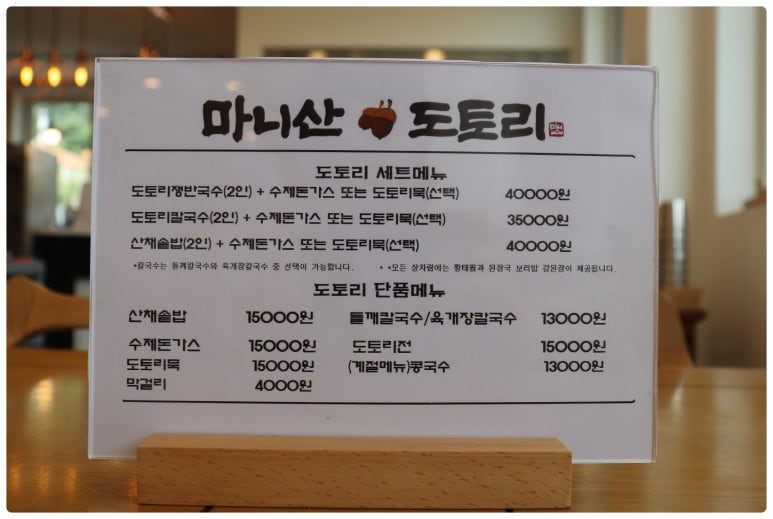 마니산 도토리
도토리 세트메뉴
도토리쟁반국수(2인) + 수제돈가스 또는 도토리묵(선택) 40000원
도토리칼국수(2인) + 수제돈가스 또는 도토리묵(선택) 35000원
산채솥밥(2인) + 수제돈가스 또는 도토리묵(선택) 40000원
*칼국수는 들깨칼국수와 육개장칼국수 중 선택이 가능합니다. * *모든 상차림에는 황태찜과 된장국 보리밥 강된장이 제공됩니다.
도토리 단품메뉴
산채솥밥 15000원 들깨칼국수/육개장칼국수 13000원
수제돈가스 15000원 도토리전 15000원
도토리묵 15000원 (계절메뉴)콩국수 13000원
막걸리 4000원